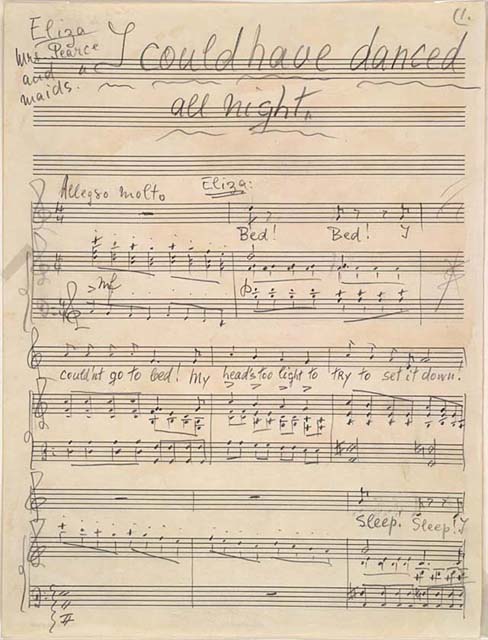 1.
Eliza
Mrs. Pearce
and
maids.
"I could have danced
all night."
Allegro molto
Eliza:
4/4
Bed! Bed! I
mf
p
couldn't go to bed! My head's too light to try to set it down.
Sleep! Sleep! I